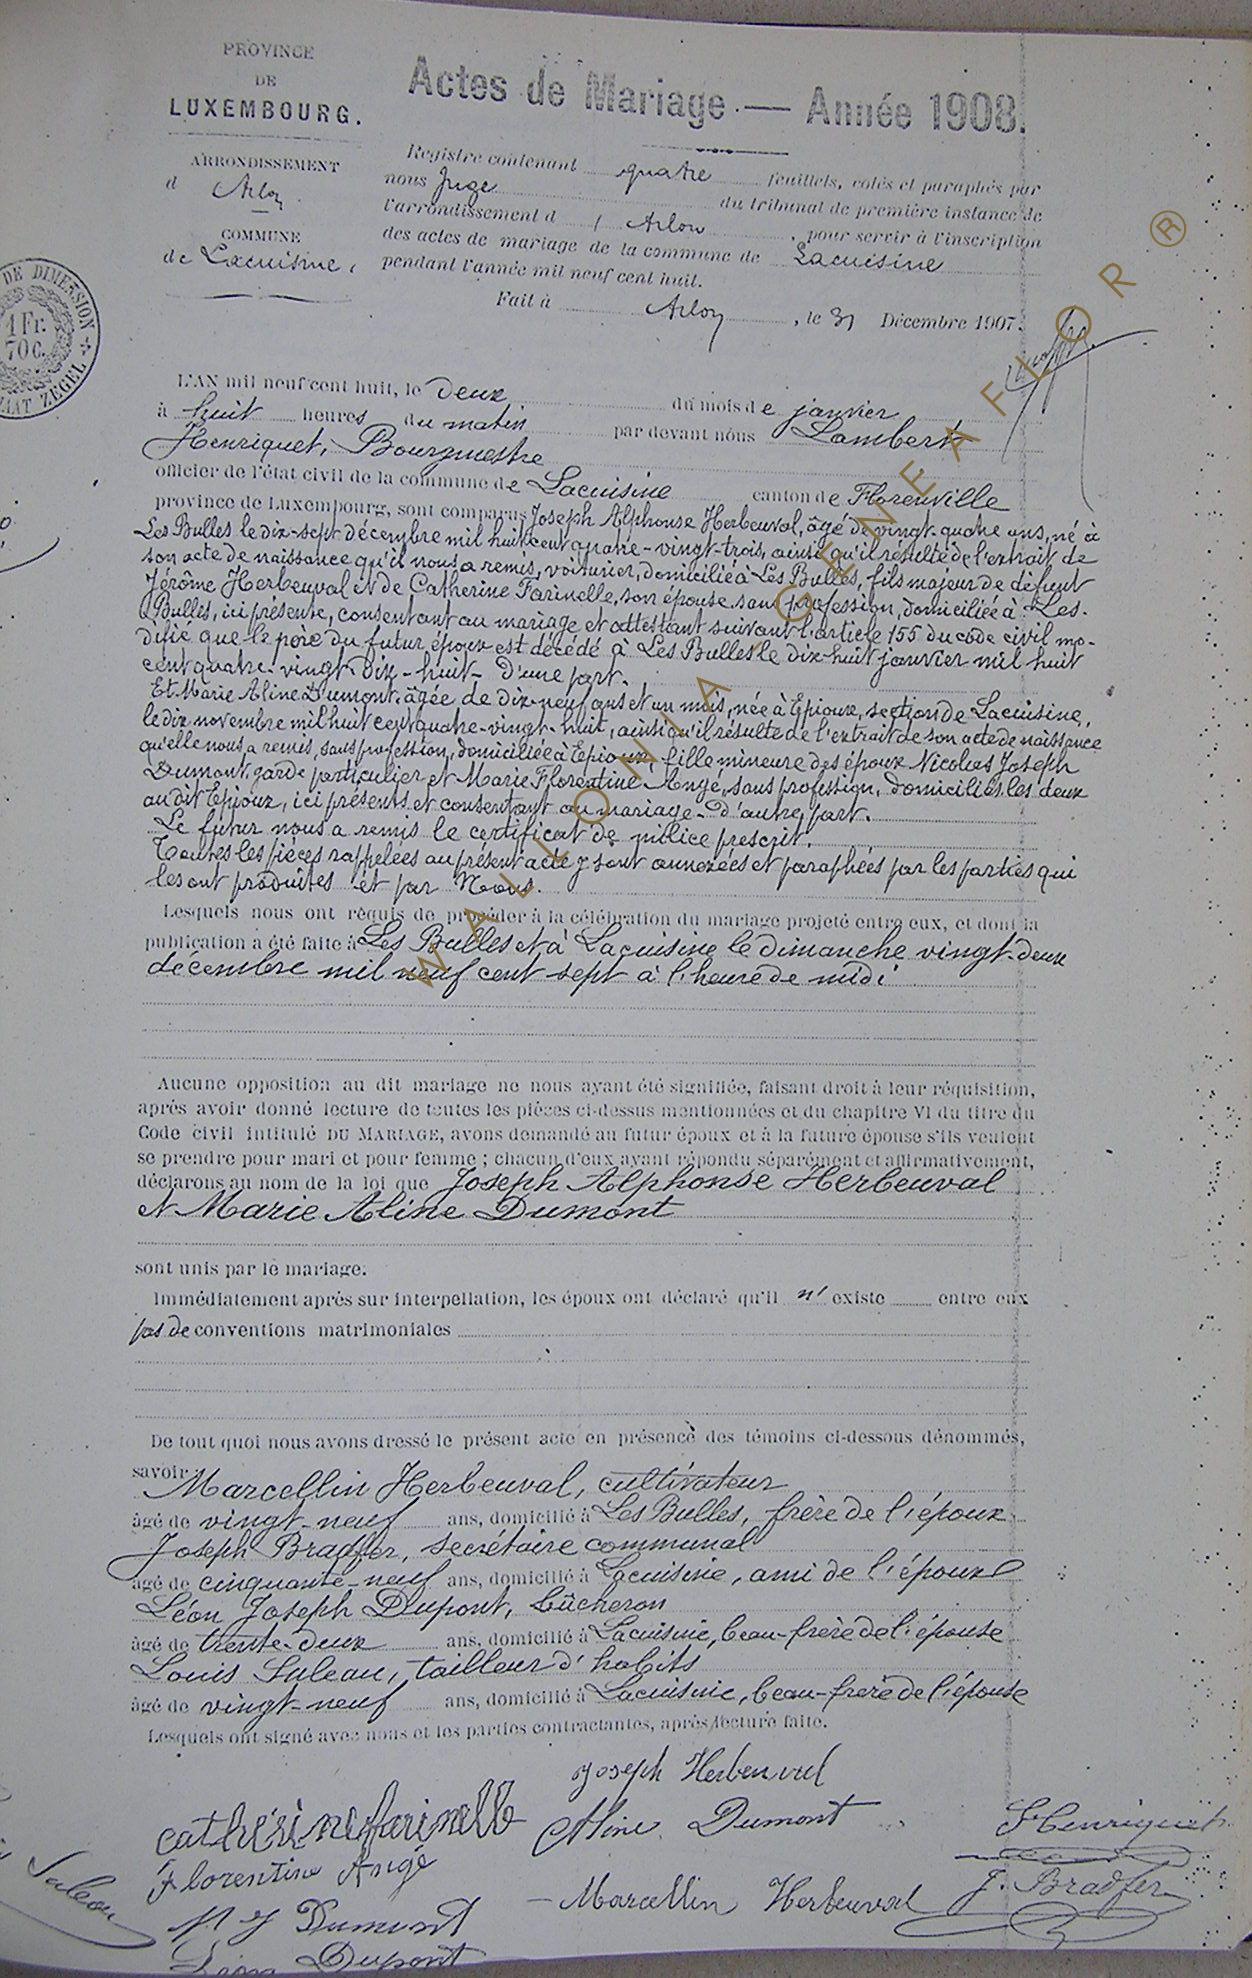 PROVINCE
DE
LUXEMBOURG.
ARRONDISSEMENT
d Arlon
COMMUNE
de Lacuisine,
Actes de Mariage. — Année 1908.
Registre contenant quatre feuillets, cotés et paraphés par
nous Juge du tribunal de première instance de
l'arrondissement d' Arlon, pour servir à l'inscription
des actes de mariage de la commune de Lacuisine
pendant l'année mil neuf cent huit.
Fait à Arlon, le 31 Décembre 1907.
DE DIMENSION
1 Fr.
70 C.
ZEGEL
L'AN mil neuf cent huit, le deux du mois de janvier
à huit heures du matin par devant nous Lambert
Henriquet, Bourgmestre
officier de l'état civil de la commune de Lacuisine canton de Florenville
province de Luxembourg, sont comparus Joseph Alphonse Herbeuval, âgé de vingt-quatre ans, né à
Les Bulles le dix-sept décembre mil huit cent quatre-vingt-trois, ainsi qu'il résulte de l'extrait de
son acte de naissance qu'il nous a remis, voiturier, domicilié à Les Bulles, fils majeur de défunt
Jérôme Herbeuval et de Catherine Farinelle, son épouse sans profession, domiciliée à Les-
Bulles, ici présente, consentant au mariage et attestant suivant l'article 155 du code civil mo-
difié que le père du futur époux est décédé à Les Bulles le dix-huit janvier mil huit
cent quatre-vingt-dix-huit- d'une part.
Et Marie Aline Dumont, âgée de dix-neuf ans et un mois, née à Epioux, section de Lacuisine,
le dix novembre mil huit cent quatre-vingt-huit, ainsi qu'il résulte de l'extrait de son acte de naissance
qu'elle nous a remis, sans profession, domiciliée à Epioux, fille mineure des époux Nicolas Joseph
Dumont, garde particulier et Marie Florentine Angé, sans profession, domiciliés les deux
au dit Epioux, ici présents et consentant au mariage- d'autre part.
Le futur nous a remis le certificat de milice prescrit.
Toutes les pièces rappelées au présent acte y sont annexées et paraphées par les parties qui
les ont produites et par Nous.
Lesquels nous ont requis de procéder à la célébration du mariage projeté entre eux, et dont la
publication a été faite à Les Bulles et à Lacuisine le dimanche vingt-deux
décembre mil neuf cent sept à l'heure de midi
Aucune opposition au dit mariage ne nous ayant été signifiée, faisant droit à leur réquisition,
après avoir donné lecture de toutes les pièces ci-dessus mentionnées et du chapitre VI du titre du
Code civil intitulé DU MARIAGE, avons demandé au futur époux et à la future épouse s'ils veulent
se prendre pour mari et pour femme ; chacun d'eux ayant répondu séparément et affirmativement,
déclarons au nom de la loi que Joseph Alphonse Herbeuval
et Marie Aline Dumont
sont unis par le mariage.
Immédiatement après sur interpellation, les époux ont déclaré qu'il n' existe entre eux
pas de conventions matrimoniales
De tout quoi nous avons dressé le présent acte en présence des témoins ci-dessous dénommés,
savoir Marcellin Herbeuval, cultivateur
âgé de vingt-neuf ans, domicilié à Les Bulles, frère de l'époux
Joseph Bradfer, secrétaire communal
âgé de cinquante-neuf ans, domicilié à Lacuisine, ami de l'époux
Léon Joseph Dupont, bûcheron
âgé de trente-deux ans, domicilié à Lacuisine, beau-frère de l'épouse
Louis Suleau, tailleur d'habits
âgé de vingt-neuf ans, domicilié à Lacuisine, beau-frère de l'épouse
Lesquels ont signé avec nous et les parties contractantes, après lecture faite.
Joseph Herbeuval
catherine farinelle Aline Dumont Henriquet
Florentine Angé
Suleau Marcellin Herbeuval J. Bradfer
N J Dumont
Léon Dupont
WALLONIA GENEAFLOR ®